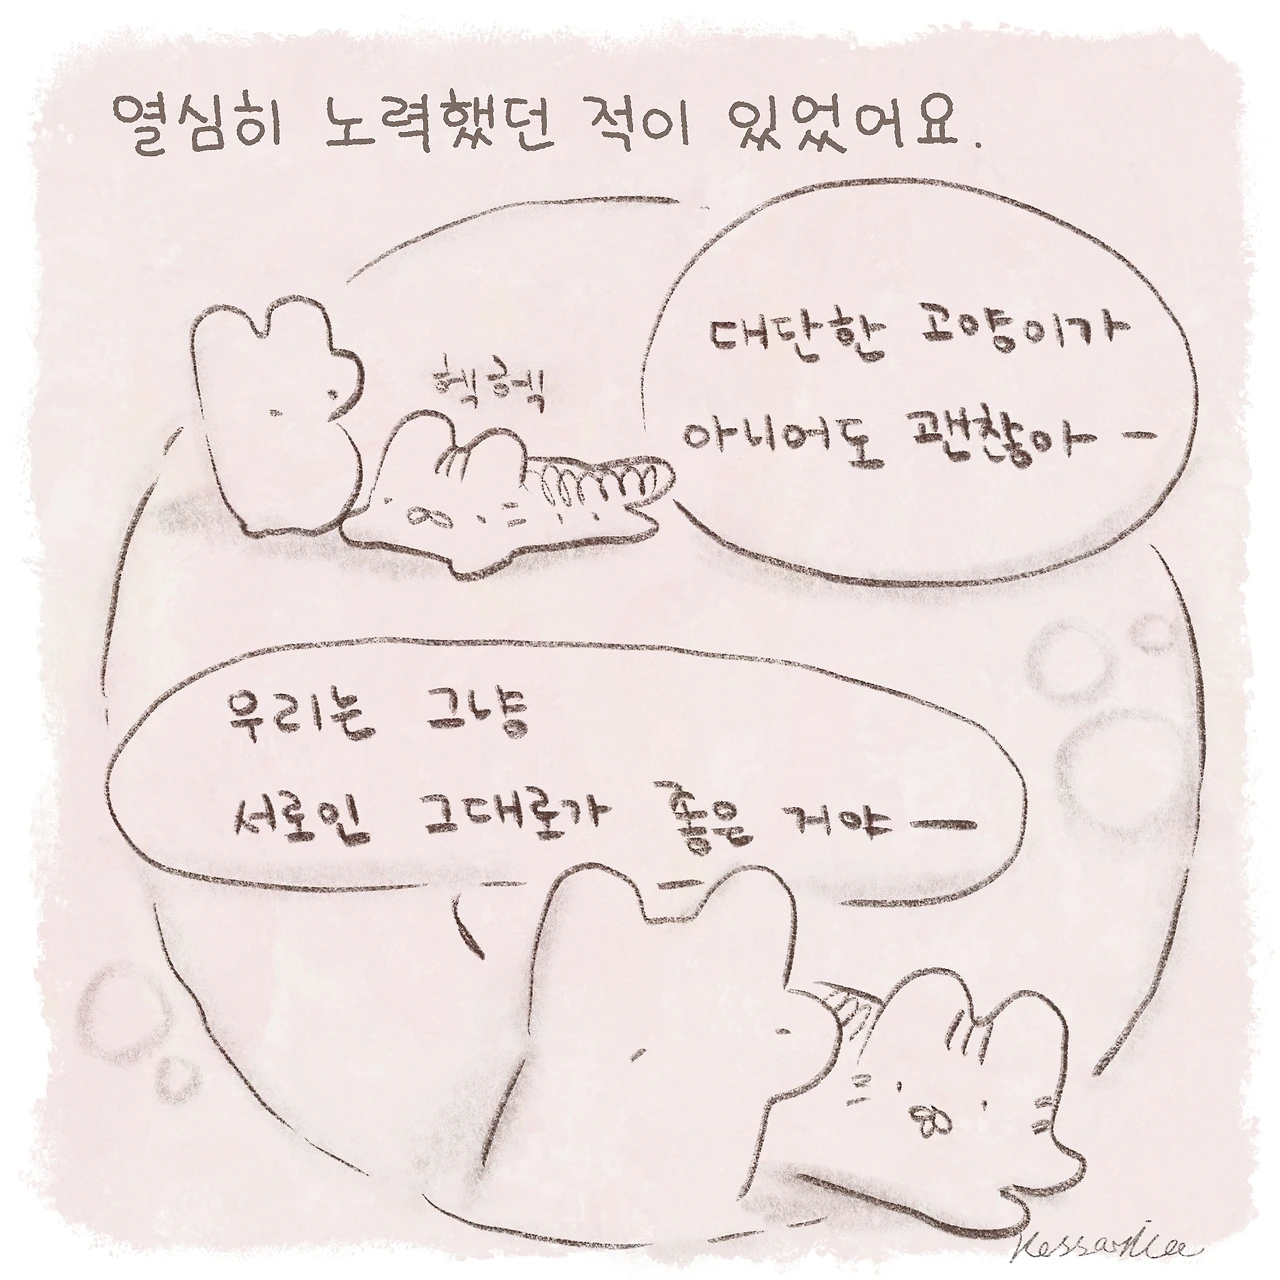 열심히 노력했던 적이 있었어요.
대단한 고양이가
아니어도 괜찮아 -
헥헥
우리는 그냥
서로인 그대로가 좋은 거야 —